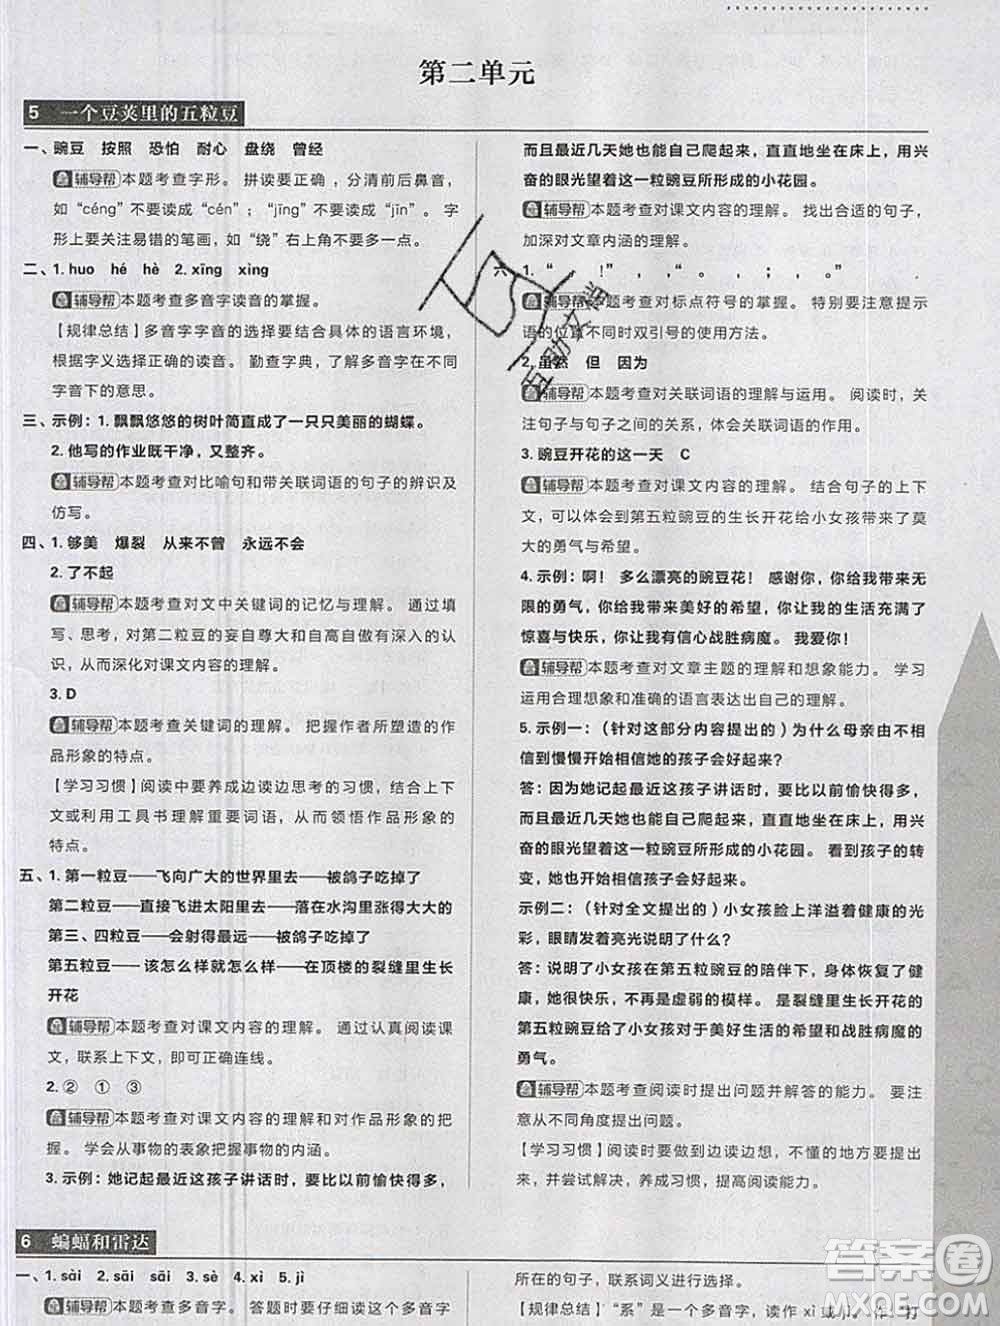 第二单元
5 一个豆荚里的五粒豆
一、豌豆 按照 恐怕 耐心 盘绕 曾经
辅导帮 本题考查字形。拼读要正确，分清前后鼻音，
如“céng”不要读成“cén”；“jīng”不要读成“jīn”。字
形上要关注易错的笔画，如“绕”右上角不要多一点。
二、1. huo hé hè 2. xīng xìng
辅导帮 本题考查多音字读音的掌握。
【规律总结】多音字字音的选择要结合具体的语言环境，
根据字义选择正确的读音。勤查字典，了解多音字不同
字音下的意思。
三、示例：1. 飘飘悠悠的树叶简直成了一只只美丽的蝴蝶。
2. 他写的作业既干净，又整齐。
辅导帮 本题考查对比喻句和带关联词语的句子的辨识及
仿写。
四、1. 够美 爆裂 从来不曾 永远不会
2. 了不起
辅导帮 本题考查对文中关键词的记忆与理解。通过填
写、思考，对第二粒豆的妄自尊大和自高自傲有深入的认
识，从而深化对课文内容的理解。
3. D
辅导帮 本题考查关键词的理解。把握作者所塑造的作
品形象的特点。
【学习习惯】阅读中要养成边读边思考的习惯，联系上下
文或利用工具书理解重要词语，从而领悟作品形象的
特点。
五、1. 第一粒豆——飞向广大的世界里去——被鸽子吃掉了
第二粒豆——直接飞进太阳里去——落在水沟里涨得大大的
第三、四粒豆——会射得最远——被鸽子吃掉了
第五粒豆——该怎么样就怎么样——在顶楼的裂缝里生长
开花
辅导帮 本题考查对课文内容的理解。通过认真阅读课
文，联系上下文，即可正确连线。
2. ② ① ③
辅导帮 本题考查对课文内容的理解和对作品形象的把
握。学会从事物的表象把握事物的内涵。
3. 示例：她记起最近这孩子讲话时，要比以前愉快得多，
而且最近几天她也能自己爬起来，直直地坐在床上，用兴
奋的眼光望着这一粒豌豆所形成的小花园。
辅导帮 本题考查对课文内容的理解。找出合适的句子，
加深对文章内涵的理解。
六、1. “ ， ！”，，“。，；，。”
辅导帮 本题考查对标点符号的掌握。特别要注意提示
语的位置不同时双引号的使用方法。
2. 虽然 但 因为
辅导帮 本题考查对关联词语的理解与运用。阅读时，关
注句子与句子之间的关系，体会关联词语的作用。
3. 豌豆开花的这一天 C
辅导帮 本题考查对课文内容的理解。结合句子的上下
文，可以体会到第五粒豌豆的生长开花给小女孩带来了莫
大的勇气与希望。
4. 示例：啊！多么漂亮的豌豆花！感谢你，你给我带来无
限的勇气，你给我带来美好的希望，你让我的生活充满了
惊喜与快乐，你让我有信心战胜病魔。我爱你！
辅导帮 本题考查对文章主题的理解和想象能力。学习
运用合理想象和准确的语言表达出自己的理解。
5. 示例一：（针对这部分内容提出的）为什么母亲由不相
信到慢慢开始相信她的孩子会好起来？
答：因为她记起最近这孩子讲话时，要比以前愉快得多，而
且最近几天她也能自己爬起来，直直地坐在床上，用兴
奋的眼光望着这一粒豌豆所形成的小花园。看到孩子的
转变，她也开始相信孩子会好起来。
示例二：（针对全文提出的）小女孩脸上洋溢着健康的光
彩，眼睛发着亮光说明了什么？
答：说明了小女孩在第五粒豌豆的陪伴下，身体恢复了健
康，她很快乐，不再是虚弱的模样。是裂缝里生长开花的
第五粒豌豆给了小女孩对于美好生活的希望和战胜病魔的
勇气。
辅导帮 本题考查阅读时提出问题并解答的能力。要注
意从不同角度提出问题。
【学习习惯】阅读时要做到边读边想，不懂的地方要提问，
并尝试解决，养成习惯，提高阅读能力。
6 蝙蝠和雷达
一、1. sài 2. sāi sāi 3. sè 4. xì 5. jì
辅导帮 本题考查多音字。答题时要仔细读一读多音字
所在的句子，联系词义进行选择。
【规律总结】“系”是一个多音字，读作 xì 或 jì。作“打
答案圈
MXQE.COM